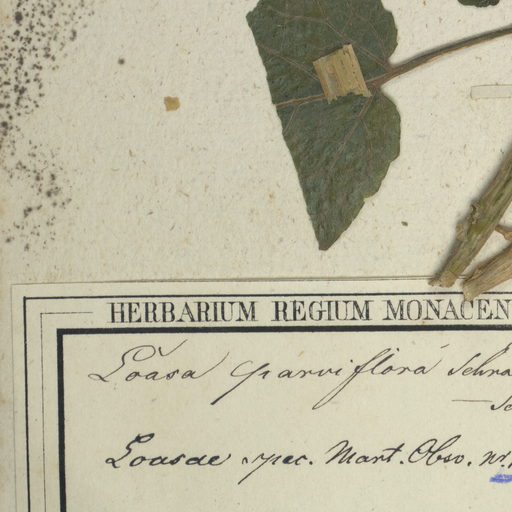 HERBARIUM REGIUM MONACEN
Loasa parviflora Schra
Loasae spec. Mart. Obsv. nr.